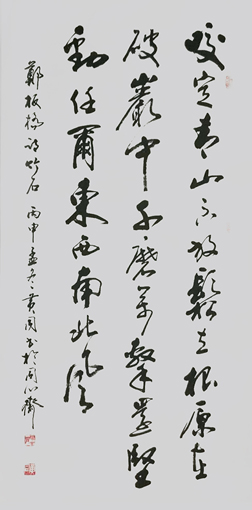 咬定青山不放鬆立根原在
破巖中千磨萬擊還堅
勁任爾東西南北風
鄭板橋詩竹石 丙申孟冬黃國書於心齋